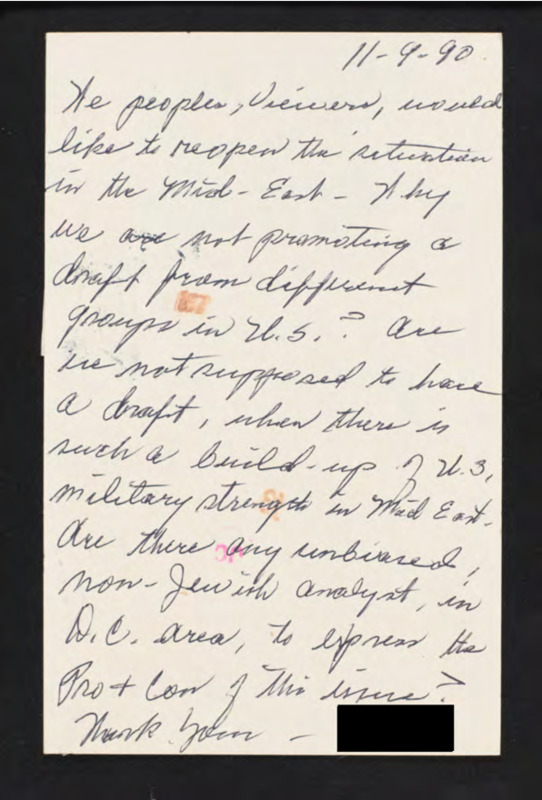 11-9-90
We peoples, Viewers, would
like to reopen the situation
in the Mid-East - Why
we are not promoting a
draft from different
groups in U.S.? Are
we not supposed to have
a draft, when there is
such a build-up of U.S.
military strength in Mid East.
Are there any unbiased,
non-Jewish analyst, in
D.C. area, to express the
Pro + Con of this issue?
Thank You -